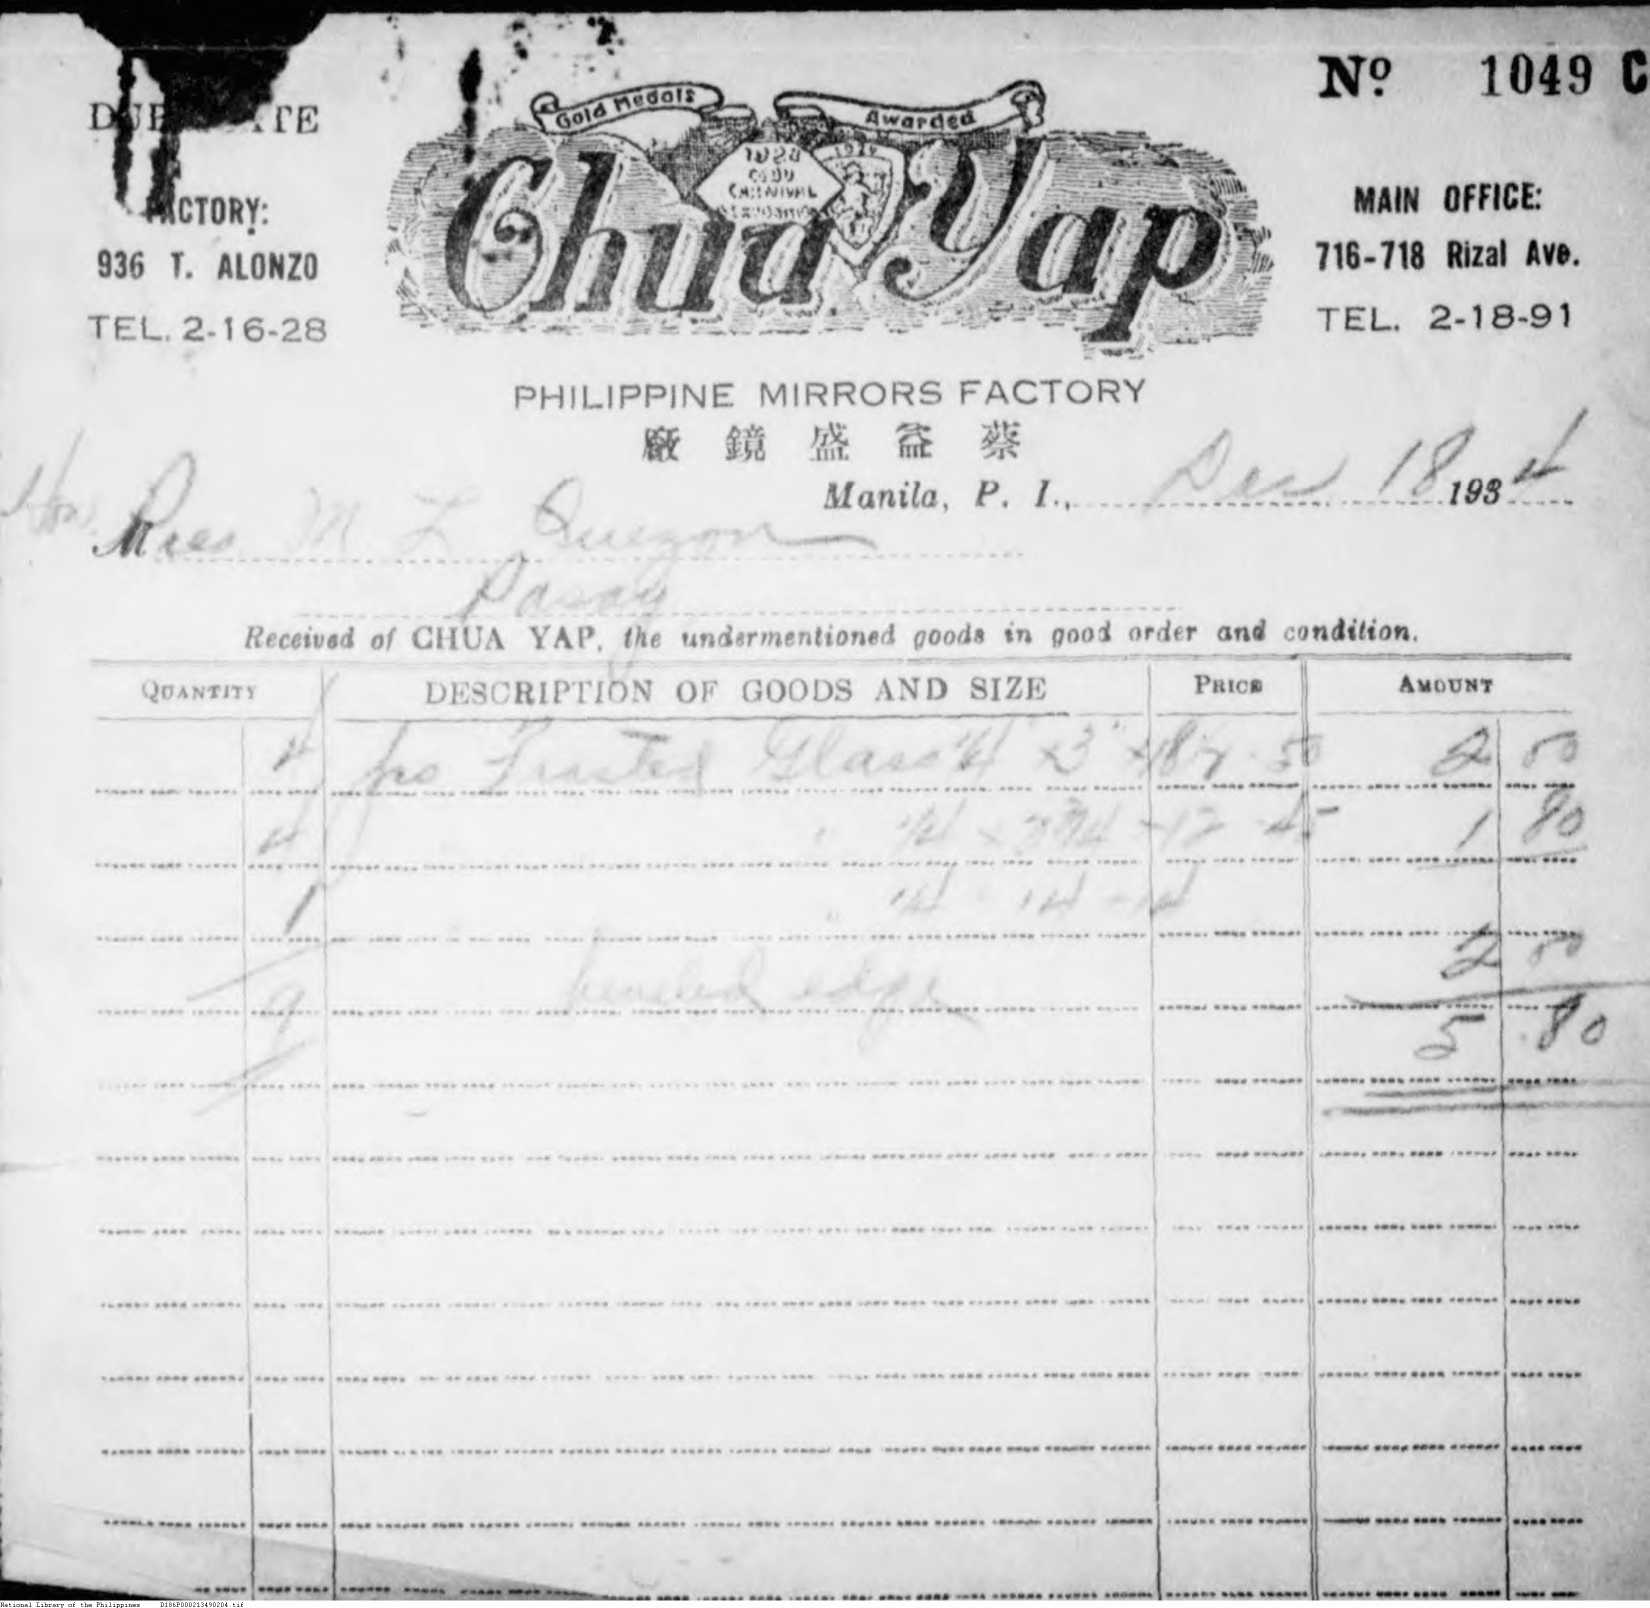 Nº 1049 C
DUPLICATE
Gold Medals Awarded
Chua Yap
CEBU
CARNIVAL
FACTORY:
936 T. ALONZO
TEL. 2-16-28
MAIN OFFICE:
716-718 Rizal Ave.
TEL. 2-18-91
PHILIPPINE MIRRORS FACTORY
廠 鏡 盛 益 蔡
Manila, P. I., Dec 18 1934
Hon. Pres M. L. Quezon
Pasay
Received of CHUA YAP, the undermentioned goods in good order and condition.
QUANTITY DESCRIPTION OF GOODS AND SIZE PRICE AMOUNT
4 pcs Frosted Glass 1/4 x 3" x 18 1/2 .50 2 00
4 " 1/4 x 3 3/4 - 12 .45 1 80
1 " 1/4 - 14 - 14
2 00
9 beveled edge
5.80
National Library of the Philippines D186P000213490204.tif